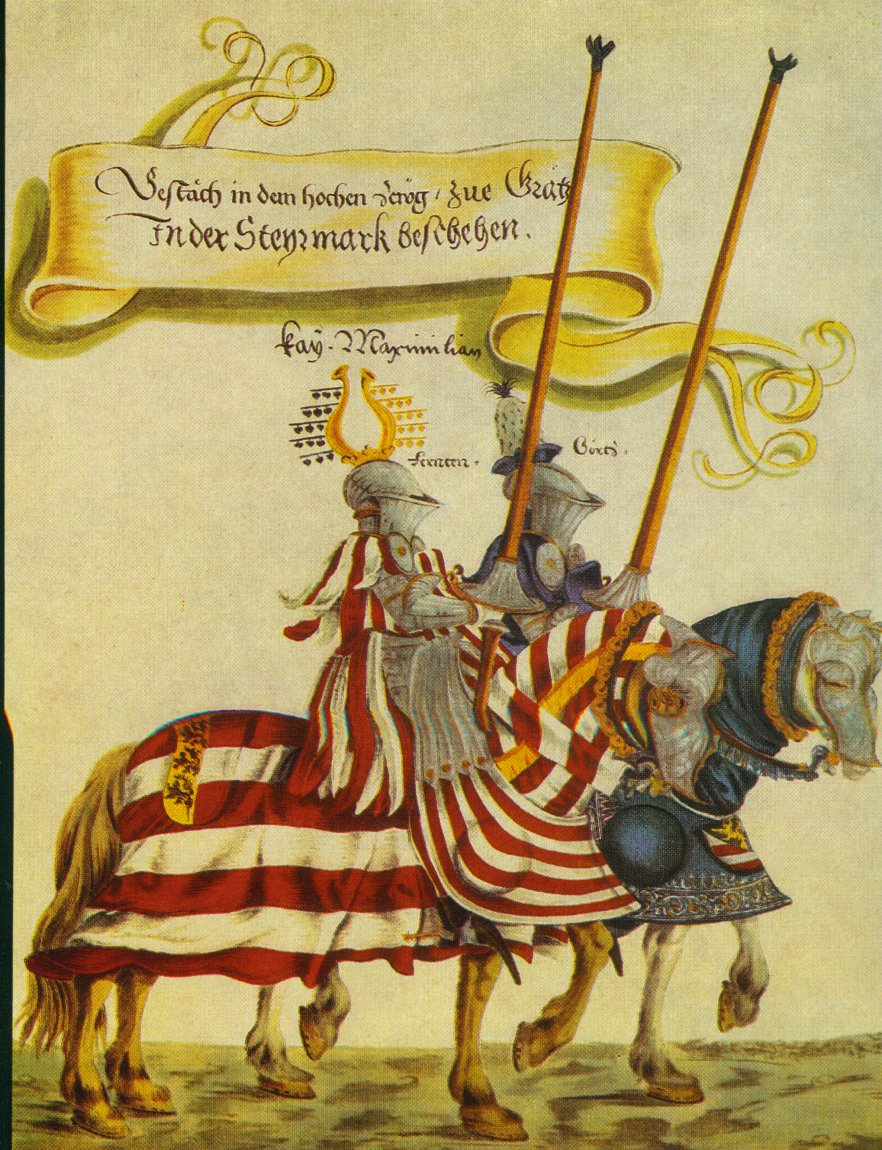 Gestäch in dem hochen Zeüg, zue Grätz
In der Steyrmark beschehen.
Kaÿ. Maximilian
Görtz.